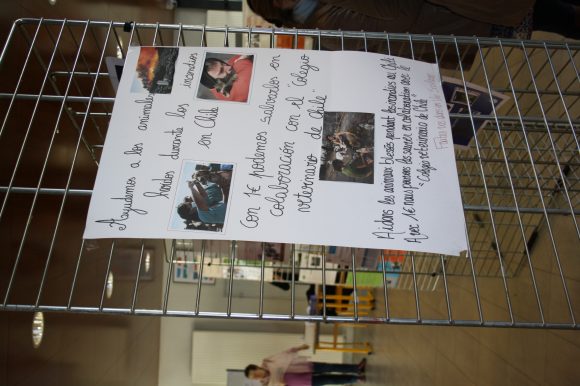 Ayudamos a los animales
heridos durante los incendios
en Chile
Con 1€ podemos salvarlos en
colaboración con el "Colegio
veterinario de Chile"
Aidons les animaux blessés pendant les incendies au Chili
Avec 1€ nous pouvons les sauver en collaboration avec le
"Colegio veterinario de Chile"
Faites un don